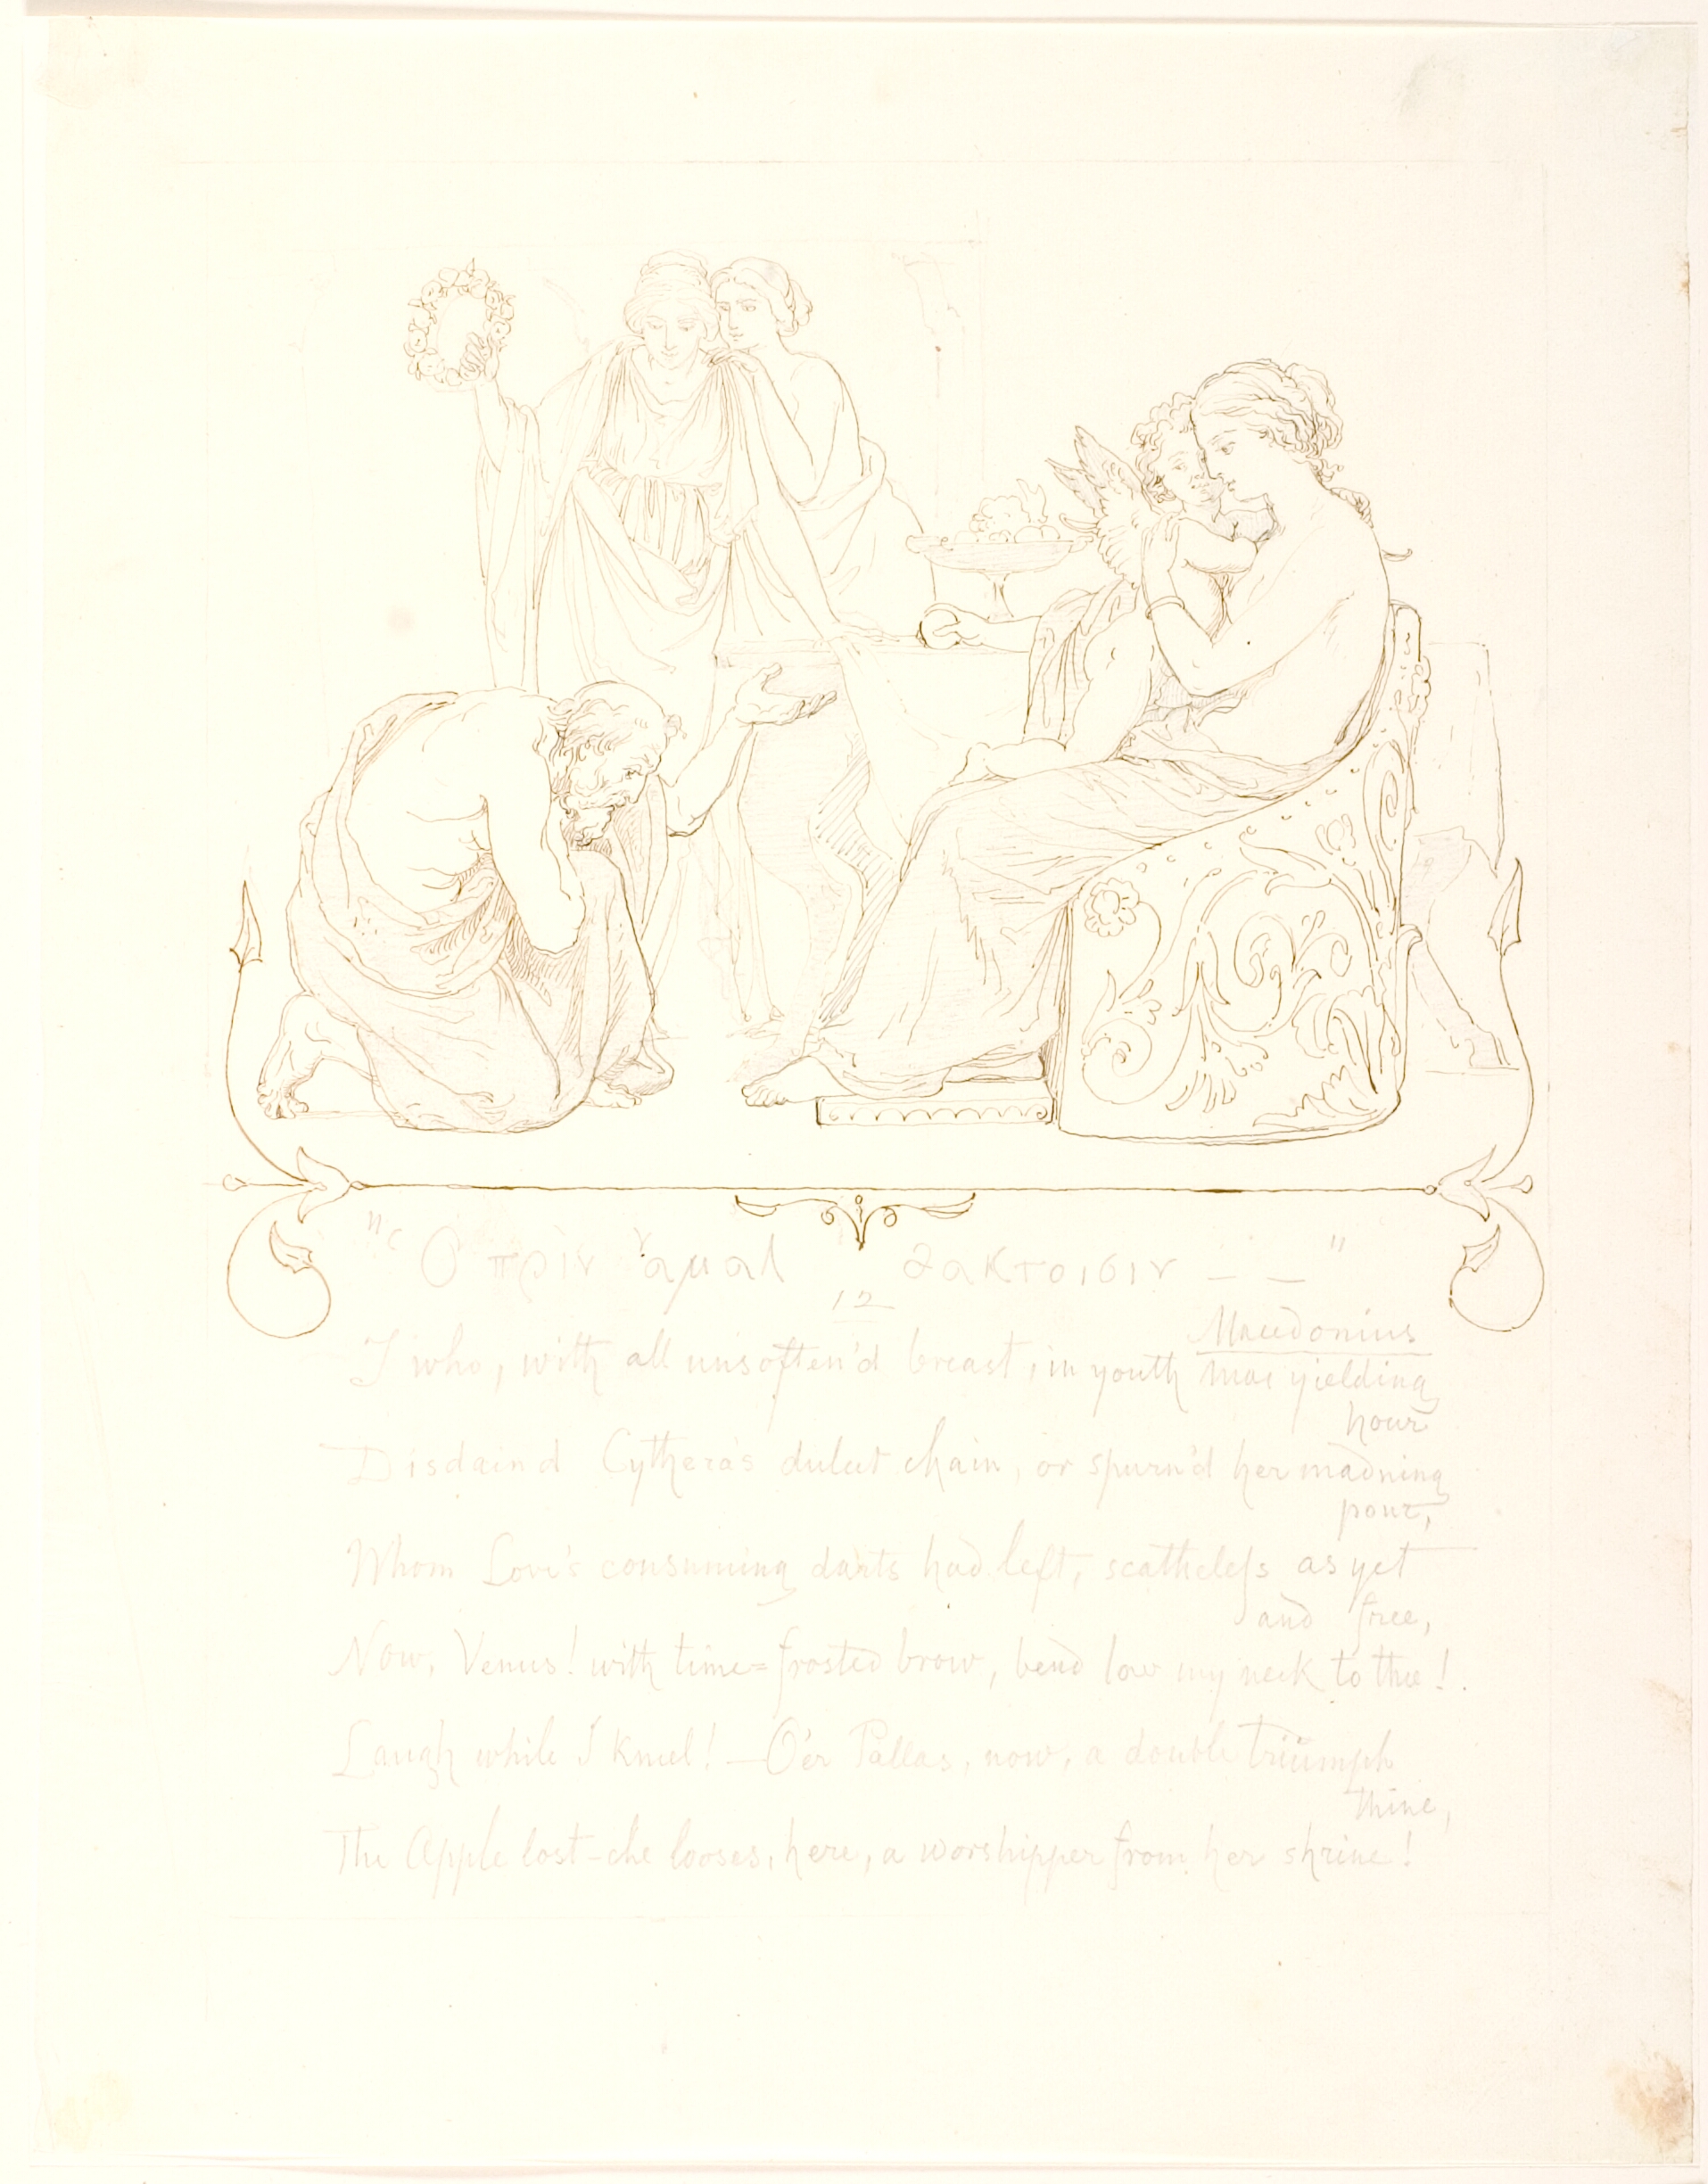 "Ὁ πρὶν ἀμαλ θακτοισιν — — "
12
Macedonius
I who, with all unsoften'd breast, in youth yielding
hour
Disdaind Cythera's dulcet chain, or spurn'd her madning
pour,
Whom Love's consuming darts had left, scatheless as yet
and free,
Now, Venus! with time=frosted brow, bend low my neck to thee!
Laugh while I kneel! — O'er Pallas, now, a double triumph
thine,
The Apple lost - she looses, here, a worshipper from her shrine!